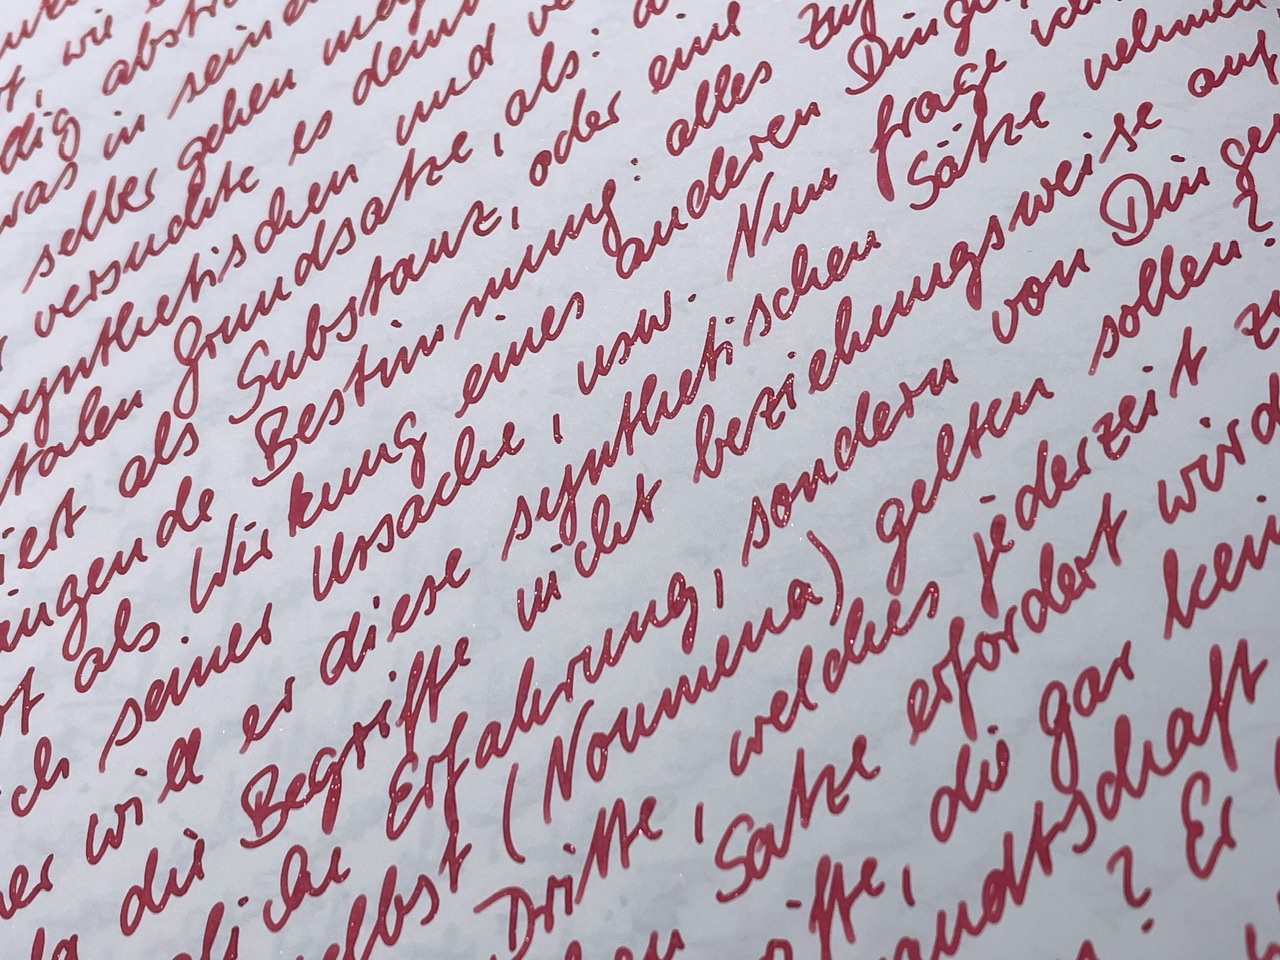 wie
abstra
was in seine
selber gehen mag
versuchte es demn
synthetischen und ve
talen Grundsatze, als: a
iert als Substanz, oder eine
ängende Bestimmung: alles Zuf
rt als Wirkung eines anderen Dinge
ch seiner Ursache, usw. Nun frage
her will er diese synthetischen Sätze nehmen,
da die Begriffe nicht beziehungsweise auf
liche Erfahrung, sondern von Dingen
elbst (Noumena) gelten sollen?
Dritte, welches jederzeit zu
hen Satze erfordert wird
iffe, die gar kein
andtschaft
? Er